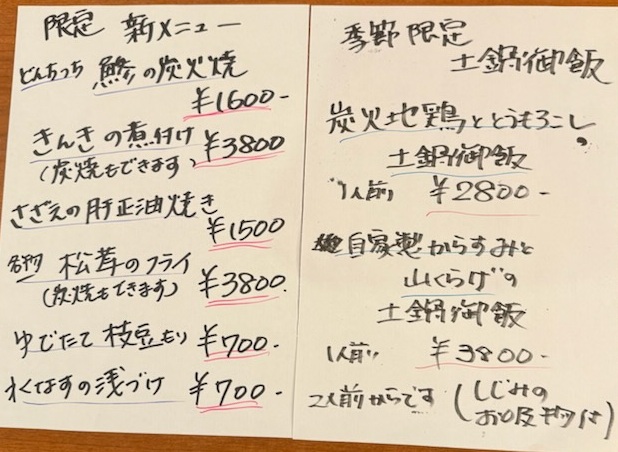 限定 新メニュー
どんちっち 鯵の炭火焼
¥1600-
きんきの煮付け ¥3800
(炭焼もできます)
さざえの肝正油焼き
¥1500
名物 松茸のフライ
(炭焼もできます) ¥3800.
ゆでたて枝豆もり ¥700-
水なすの浅づけ ¥700-
季野限定
土鍋御飯
炭火地鶏ととうもろこし
土鍋御飯
1人前 ¥2800-
自家製からすみと
山くらげの
土鍋御飯
1人前 ¥3800-
2人前からです (しじみの
お吸物付)